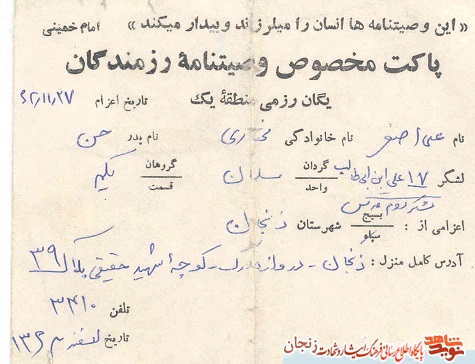 «این وصیتنامه ها انسان را میلرزاند و بیدار میکند» امام خمینی
پاکت مخصوص وصیتنامهٔ رزمندگان
یگان رزمی منطقهٔ یک
تاریخ اعزام ۶۲/۱۱/۲۷
نام علی اصغر نام خانوادگی نام پدر حسن
لشگر ۱۷ علی ابن ابی طالب گردان واحد سلمان گروهان قسمت
اعزامی از: بسیج سپاه شهرستان زنجان
آدرس کامل منزل: زنجان - دروازه - کوچهٔ شهید حقیقی پلاک ۳۹
تلفن ۳۴۱۰
تاریخ اسفند
نوید شاهد پایگاه اطلاع رسانی فرهنگ ایثار و شهادت زنجان